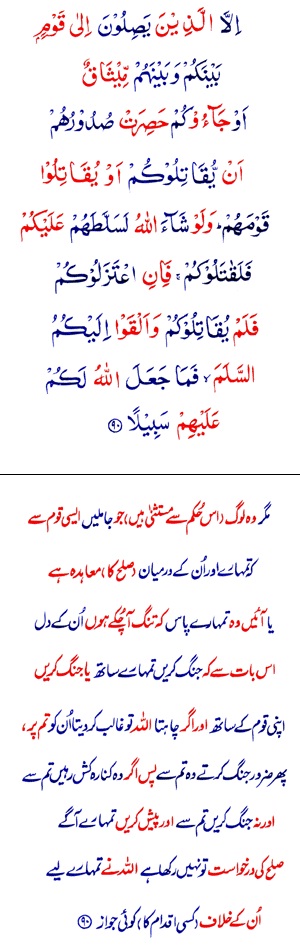 اِلَّا الَّذِيْنَ يَصِلُوْنَ اِلٰى قَوْمٍۭ
بَيْنَكُمْ وَبَيْنَهُمْ مِّيْثَاقٌ
اَوْ جَآءُوْكُمْ حَصِرَتْ صُدُوْرُهُمْ
اَنْ يُّقَاتِلُوْكُمْ اَوْ يُقَاتِلُوْا
قَوْمَهُمْ ؕ وَلَوْ شَآءَ اللّٰهُ لَسَلَّطَهُمْ عَلَيْكُمْ
فَلَقٰتَلُوْكُمْ ۚ فَاِنِ اعْتَزَلُوْكُمْ
فَلَمْ يُقَاتِلُوْكُمْ وَاَلْقَوْا اِلَيْكُمُ
السَّلَمَ ۙ فَمَا جَعَلَ اللّٰهُ لَكُمْ
عَلَيْهِمْ سَبِيْلًا ﴿۹۰﴾
مگر وہ لوگ (اس حُکم سے مستثنیٰ ہیں) جو جا ملیں ایسی قوم سے
کہ تمہارے اور اُن کے درمیان (صلح کا) معاہدہ ہے
یا آئیں وہ تمہارے پاس کہ تنگ آ چُکے ہوں اُن کے دل
اس بات سے کہ جنگ کریں تمہارے ساتھ یا جنگ کریں
اپنی قوم کے ساتھ اور اگر چاہتا اللہ تو غالب کر دیتا اُن کو تم پر،
پھر ضرور جنگ کرتے وہ تم سے پس اگر وہ کنارہ کش رہیں تم سے
اور نہ جنگ کریں تم سے اور پیش کریں تمہارے آگے
صلح کی درخواست تو نہیں رکھا ہے اللہ نے تمہارے لیے
اُن کے خلاف (کسی اقدام کا) کوئی جواز ﴿۹۰﴾